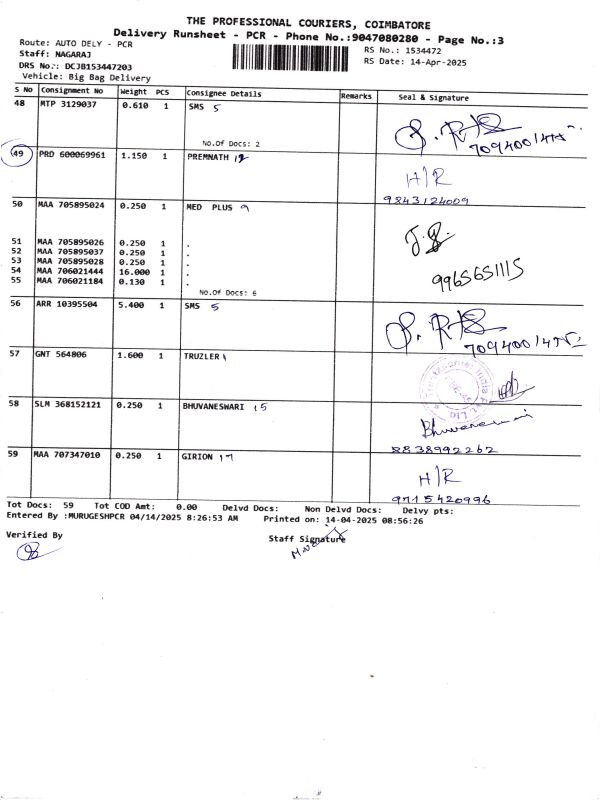 THE PROFESSIONAL COURIERS, COIMBATORE
Delivery Runsheet - PCR - Phone No.:9047080280 - Page No.:3
Route: AUTO DELY - PCR
RS No.: 1534472
Staff: NAGARAJ
RS Date: 14-Apr-2025
DRS No.: DCJB153447203
Vehicle: Big Bag Delivery
S No Consignment No Weight PCS Consignee Details Remarks Seal & Signature
48 MTP 3129037 0.610 1 SMS 5
No.Of Docs: 2
49 PRD 600069961 1.150 1 PREMNATH 12
H/R
9843124009
50 MAA 705895024 0.250 1 MED PLUS 9
51 MAA 705895026 0.250 1 .
52 MAA 705895037 0.250 1 .
53 MAA 705895028 0.250 1 .
54 MAA 706021444 16.000 1 .
55 MAA 706021184 0.130 1 .
9965651115
No.Of Docs: 6
56 ARR 10395504 5.400 1 SMS 5
57 GNT 564806 1.600 1 TRUZLER 1
58 SLM 368152121 0.250 1 BHUVANESWARI 15
8838992262
59 MAA 707347010 0.250 1 GIRION 17
H/R
9715420996
Tot Docs: 59 Tot COD Amt: 0.00 Delvd Docs: Non Delvd Docs: Delvy pts:
Entered By :MURUGESHPCR 04/14/2025 8:26:53 AM Printed on: 14-04-2025 08:56:26
Verified By
Staff Signature